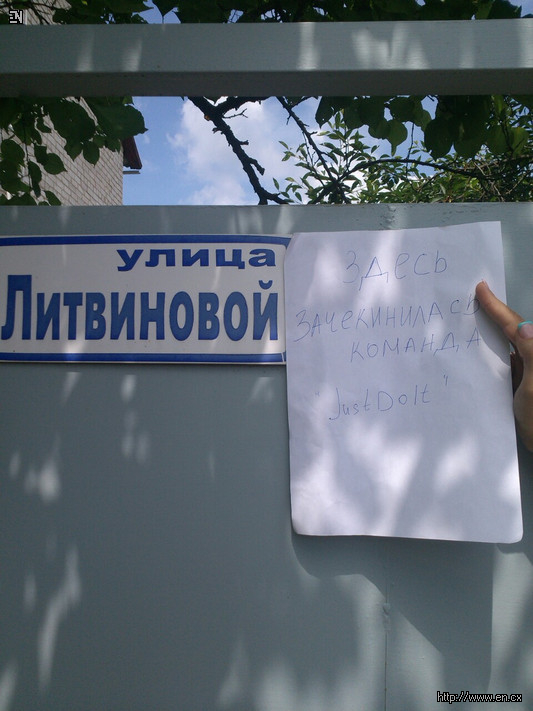 улица
Литвиновой
Здесь
зачекинилась
команда
"JustDoIt"
http://www.en.cx